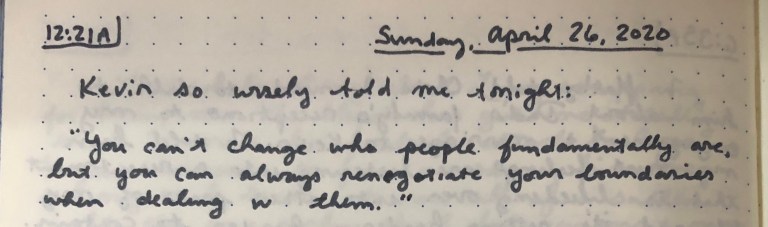 12:21A Sunday, April 26, 2020
Kevin so wisely told me tonight:
"You can't change who people fundamentally are,
but you can always renegotiate your boundaries
when dealing w them."